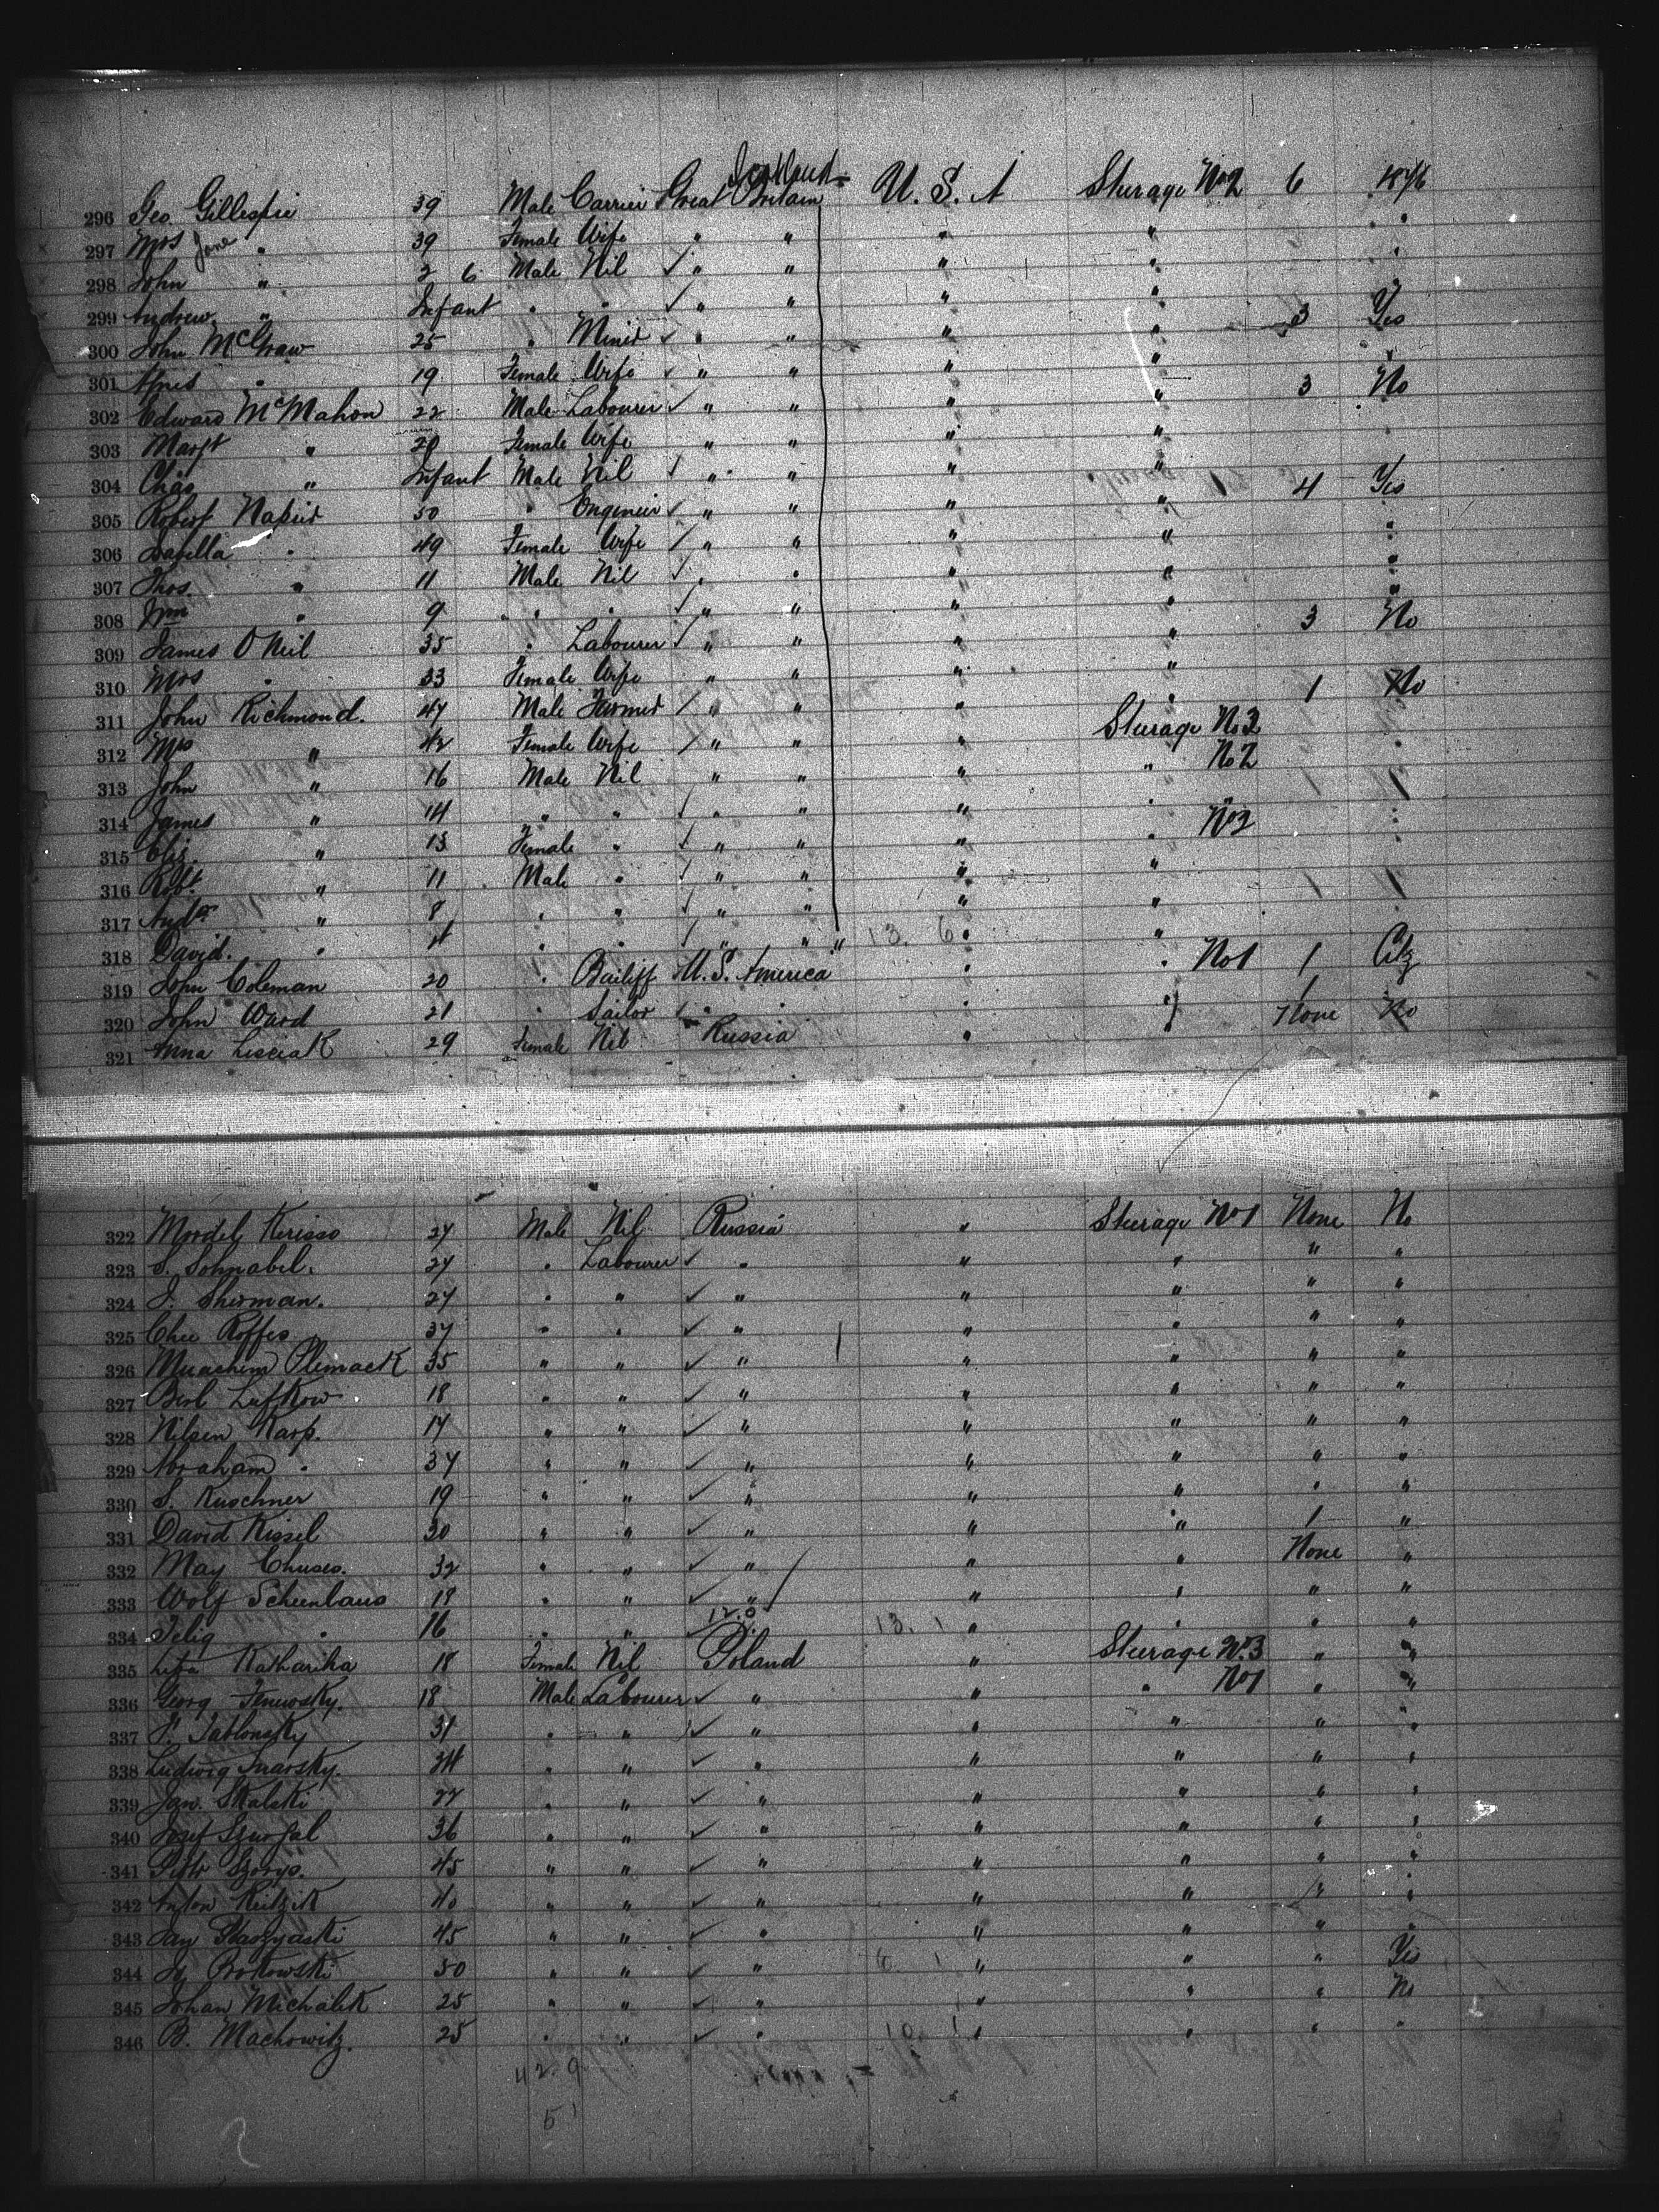 Scotland
296 Geo. Gillespie 39 Male Carrier Great Britain U. S. A Sturage No 2 6
297 Mrs Jane " 39 Female Wife " " " "
298 John " 2 6 Male Nil " " " "
299 Andrew " Infant " " " " " "
300 John McGraw 25 " Miner " " " " 3 Yes
301 Agnes " 19 Female Wife " " " "
302 Edward McMahon 22 Male Labourer " " " " 3 No
303 Margt " 20 Female Wife " " " "
304 Chas " Infant Male Nil " " " "
305 Robert Napier 50 " Engineer " " " " 4 Yes
306 Isabella " 49 Female Wife " " " " "
307 Thos. " 11 Male Nil " " " " "
308 Wm " 9 " " " " " " "
309 James O Neil 35 " Labourer " " " " 3 No
310 Mrs " 33 Female Wife " " " "
311 John Richmond. 47 Male Farmer " " " " 1 No
312 Mrs " 42 Female Wife " " " Sturage No 3
313 John " 16 Male Nil " " " " No 2
314 James " 14 " " " " " "
315 Eliz. " 13 Female " " " " " No 3
316 Robt. " 11 Male " " " " "
317 Andw. " 8 " " " " " "
318 David. " " " " " " "
319 John Coleman 20 " Bailiff U. S. America " " No 1 1 Citz
320 John Ward 21 " Sailor " " " 1
321 Anna Lisciak 29 Female Nil Russia " " None No
322 Mordel Kerisso 27 Male Nil Russia " Sturage No 1 None No
323 S. Sohnabel. 27 " Labourer " " " " "
324 J. Sherman. 27 " " " " " " "
325 Chee Roffes 37 " " " " " " "
326 Muachem Plemack 35 " " " " " " "
327 Berl Lufkow 18 " " " " " " "
328 Nilsen Karp. 17 " " " " " " "
329 Abraham " 37 " " " " " " "
330 S. Kuschner 19 " " " " " " "
331 David Kissel 30 " " " " " 1 "
332 May Chuses. 32 " " " " " None "
333 Wolf Scheenlaus 18 " " " " " " "
334 Selig " 16 " " " " " " "
335 Katharika 18 Female Nil Poland " Sturage No. 3 " "
336 Georg 18 Male Labourer " " " No 1 " "
337 Jablonsky 31 " " " " " " "
338 Ludwig 34 " " " " " " "
339 Jan. Skalski 22 " " " " " " "
340 Josef 36 " " " " " " "
341 Piotr 45 " " " " " " "
342 Anton 40 " " " " " " "
343 Jan 45 " " " " " " "
344 Borkowski 50 " " " " " " Yes
345 Johan Michalek 25 " " " " " " No
346 B. Machowitz. 25 " " " " " " "
42.9
51